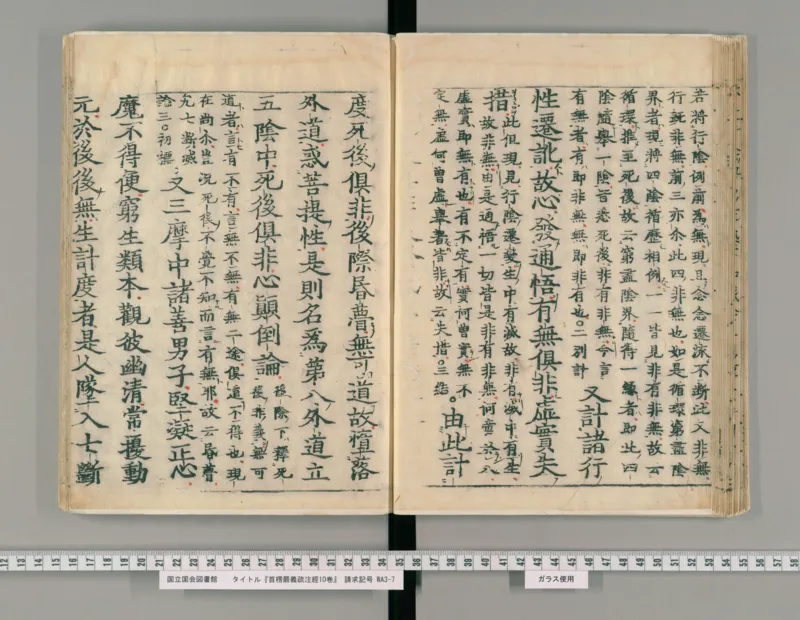 若將行陰例前為無現且念念遷流不斷此又非無
行既非無前三亦尒此四非無也如是循環窮盡陰
界者現將四陰循歷相例一一皆見非有非無故云
循環推至死後故云窮盡陰界隨得一緣者即此四
陰隨舉一陰皆悉死後非有非無今言
有無者有即非無無即非有也○二別計
又計諸行
性遷訛故心發通悟有無俱非虛實失
措
此但現見行陰遷變生中有滅故非有滅中有生
故非無由是通悟一切皆是非有非無何啻於八
虛實即無有也有不定有實何曾實無不
定無虛何曾虛皆非故云失措○三結
由此計
度死後俱非後際昏瞢無可道故墮落
外道惑菩提性是則名為第八外道立
五陰中死後俱非心顛倒論
後際下釋死
後非義無可
道者言有不有言無不無有無二途俱道不得也現
在尚尒豈況死後不覺不知而言有無邪故云昏瞢
九七斷滅
論三○初標
又三摩中諸善男子堅凝正心
魔不得便窮生類本觀彼幽清常擾動
元於後後無生計度者是人墜入七斷
国立国会図書館 タイトル『首楞嚴義疏注經10巻』 請求記号 WA3-7
ガラス使用